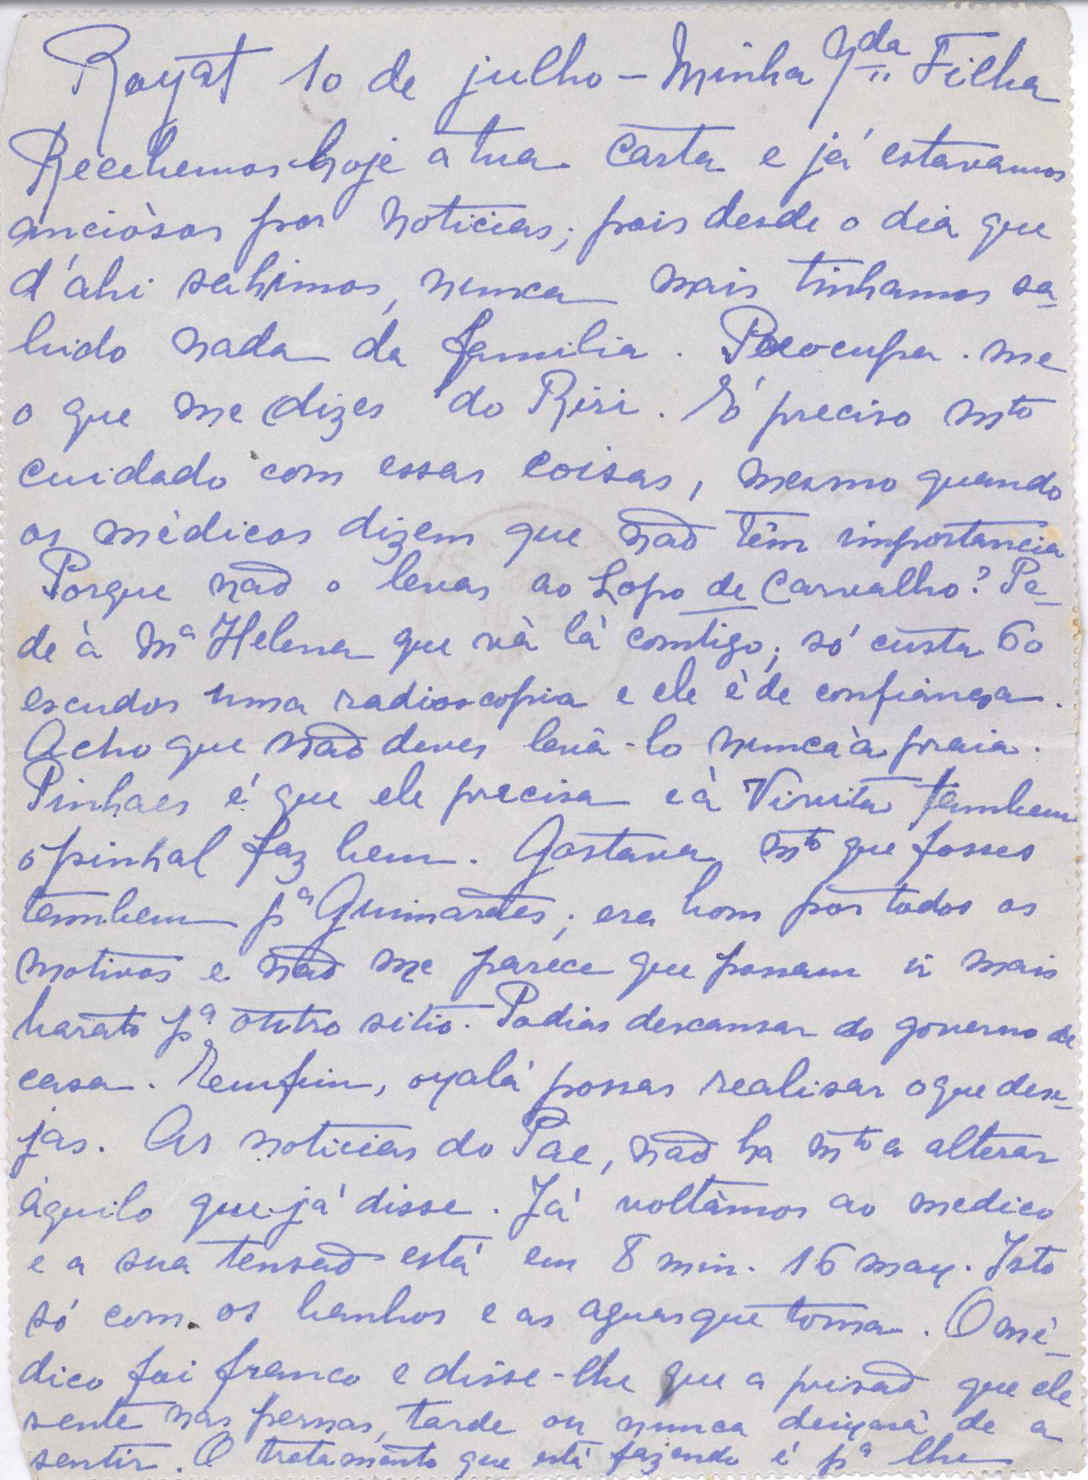 Royat 10 de julho - Minha Qda Filha
Recebemos hoje a tua carta e já estavamos
anciòsos por noticias, pois desde o dia que
d'ahi sahimos, nunca mais tinhamos sa-
bido nada da familia. Preocupa-me
o que me dizes do Riri. É preciso mto
cuidado com essas coisas, mesmo quando
os mèdicos dizem que não têm importancia
Porque não o levas ao Lopo de Carvalho? Pe-
de à Ma Helena que và là comtigo; só custa 60
escudos uma radioscopia e ele è de confiança.
Acho que não deves levà-lo nunca à praia.
Pinhaes é que ele precisa e à Viruita tambem
o pinhal faz bem. Gostava mto que fosses
tambem pa Guimarães; era bom por todos os
motivos e não me parece que possam ir mais
barato pa outro sitio. Podias descansar do governo da
casa. Emfim, oxalá possas realisar o que dese-
jas. As noticias do Pae, não ha mto a alterar
àquilo que já disse. Já voltàmos ao medico
e a sua tensão está em 8 min. 16 max. Isto
só com os banhos e as aguas que toma. O mé-
dico foi franco e disse-lhe que a prisão que ele
sente nas pernas, tarde ou nunca deixará de a
sentir. O tratamento que está fazendo é pa lhe